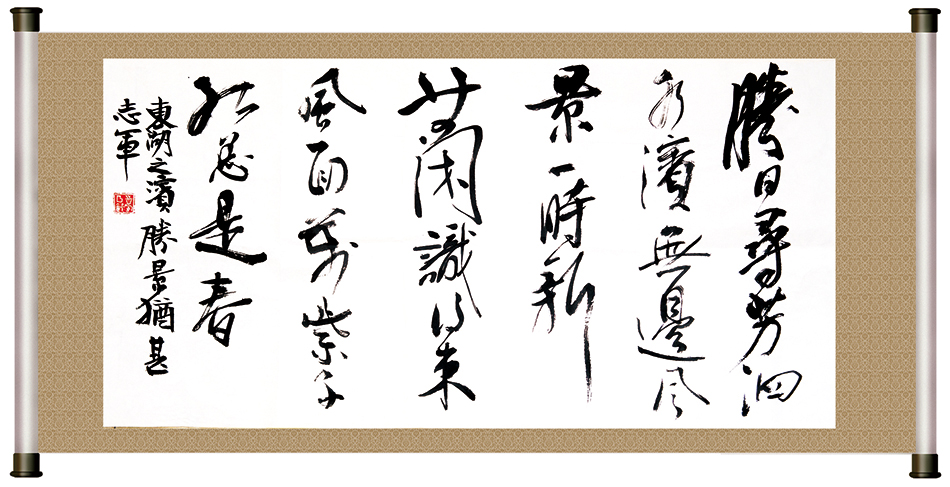 勝日尋芳泗
水濱無邊风
景一時新
等閑識得東
風面萬紫千
紅總是春
東湖之濱勝景猶甚
志軍